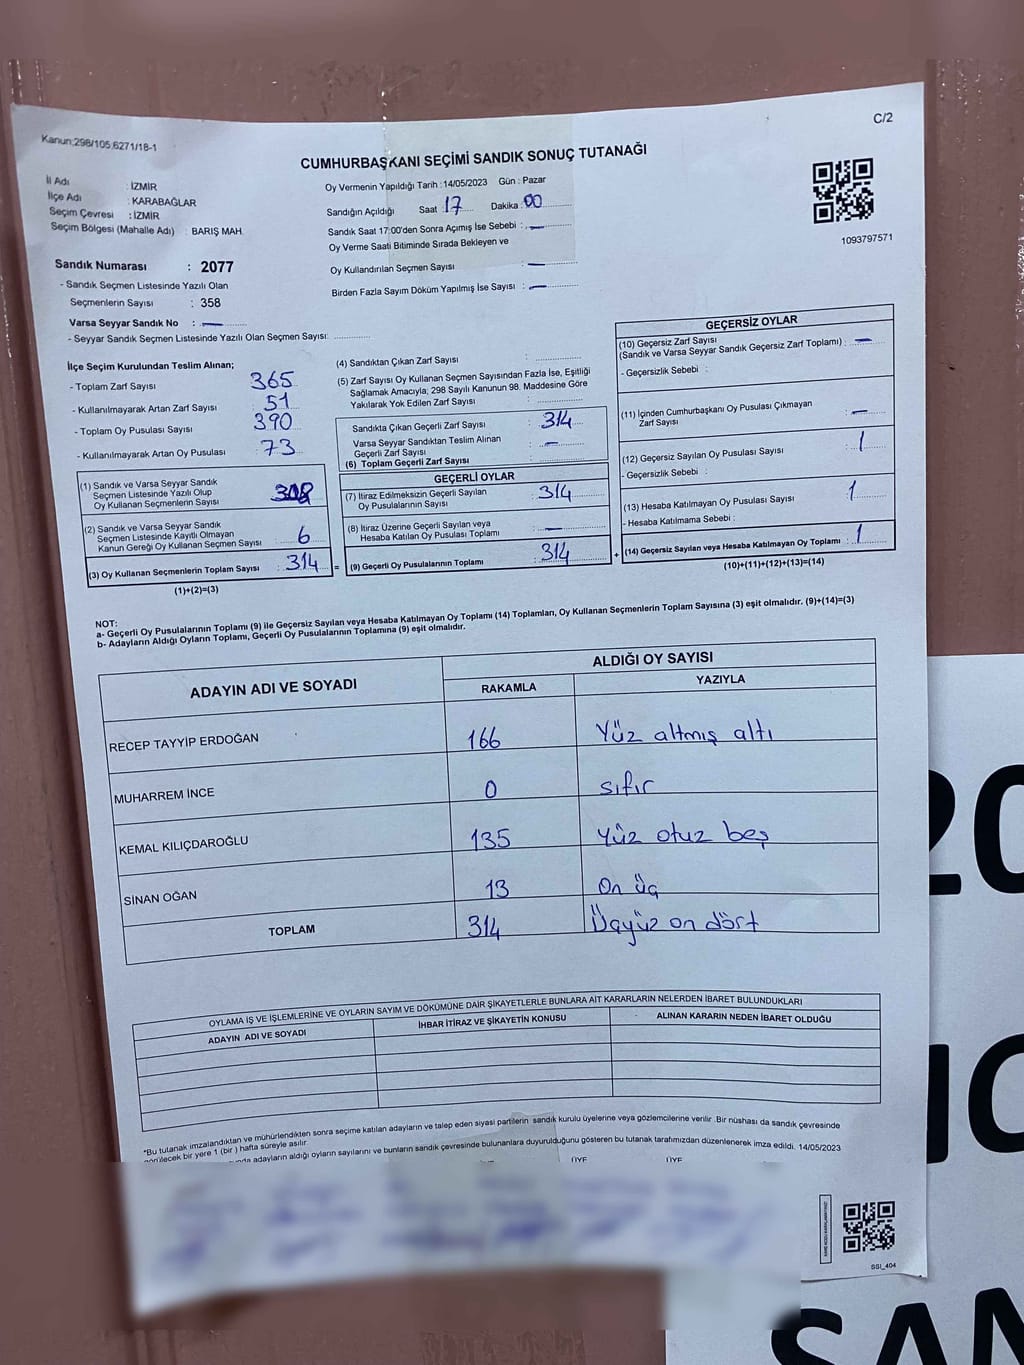 C/2
Kanun;298/105,6271/18-1
CUMHURBAŞKANI SEÇİMİ SANDIK SONUÇ TUTANAĞI
İl Adı : İZMİR
İlçe Adı : KARABAĞLAR
Seçim Çevresi : İZMİR
Seçim Bölgesi (Mahalle Adı) : BARIŞ MAH.
Oy Vermenin Yapıldığı Tarih :14/05/2023 Gün : Pazar
Sandığın Açıldığı Saat : 17 Dakika : 00
Sandık Saat 17:00'den Sonra Açımış İse Sebebi : —
Oy Verme Saati Bitiminde Sırada Bekleyen ve
Oy Kullandırılan Seçmen Sayısı : —
Birden Fazla Sayım Döküm Yapılmış İse Sayısı : —
1093797571
Sandık Numarası : 2077
- Sandık Seçmen Listesinde Yazılı Olan
Seçmenlerin Sayısı : 358
Varsa Seyyar Sandık No : —
- Seyyar Sandık Seçmen Listesinde Yazılı Olan Seçmen Sayısı:
İlçe Seçim Kurulundan Teslim Alınan;
- Toplam Zarf Sayısı 365
- Kullanılmayarak Artan Zarf Sayısı 51
- Toplam Oy Pusulası Sayısı 390
- Kullanılmayarak Artan Oy Pusulası 73
(1) Sandık ve Varsa Seyyar Sandık
Seçmen Listesinde Yazılı Olup
Oy Kullanan Seçmenlerin Sayısı : 308
(2) Sandık ve Varsa Seyyar Sandık
Seçmen Listesinde Kayıtlı Olmayan
Kanun Gereği Oy Kullanan Seçmen Sayısı : 6
(3) Oy Kullanan Seçmenlerin Toplam Sayısı : 314 =
(1)+(2)=(3)
(4) Sandıktan Çıkan Zarf Sayısı :
(5) Zarf Sayısı Oy Kullanan Seçmen Sayısından Fazla İse, Eşitliği
Sağlamak Amacıyla; 298 Sayılı Kanunun 98. Maddesine Göre
Yakılarak Yok Edilen Zarf Sayısı :
Sandıkta Çıkan Geçerli Zarf Sayısı : 314
Varsa Seyyar Sandıktan Teslim Alınan
Geçerli Zarf Sayısı : —
(6) Toplam Geçerli Zarf Sayısı :
GEÇERLİ OYLAR
(7) İtiraz Edilmeksizin Geçerli Sayılan
Oy Pusulalarının Sayısı : 314
(8) İtiraz Üzerine Geçerli Sayılan veya
Hesaba Katılan Oy Pusulası Toplamı : —
(9) Geçerli Oy Pusulalarının Toplamı : 314 +
GEÇERSİZ OYLAR
(10) Geçersiz Zarf Sayısı
(Sandık ve Varsa Seyyar Sandık Geçersiz Zarf Toplamı) : —
- Geçersizlik Sebebi :
(11) İçinden Cumhurbaşkanı Oy Pusulası Çıkmayan
Zarf Sayısı : —
(12) Geçersiz Sayılan Oy Pusulası Sayısı : 1
- Geçersizlik Sebebi :
(13) Hesaba Katılmayan Oy Pusulası Sayısı : 1
- Hesaba Katılmama Sebebi :
(14) Geçersiz Sayılan veya Hesaba Katılmayan Oy Toplamı : 1
(10)+(11)+(12)+(13)=(14)
NOT:
a- Geçerli Oy Pusulalarının Toplamı (9) ile Geçersiz Sayılan veya Hesaba Katılmayan Oy Toplamı (14) Toplamları, Oy Kullanan Seçmenlerin Toplam Sayısına (3) eşit olmalıdır. (9)+(14)=(3)
b- Adayların Aldığı Oyların Toplamı, Geçerli Oy Pusulalarının Toplamına (9) eşit olmalıdır.
ADAYIN ADI VE SOYADI
ALDIĞI OY SAYISI
RAKAMLA YAZIYLA
RECEP TAYYİP ERDOĞAN 166 Yüz altmış altı
MUHARREM İNCE 0 sıfır
KEMAL KILIÇDAROĞLU 135 Yüz otuz beş
SİNAN OĞAN 13 On üç
TOPLAM 314 Üçyüz on dört
OYLAMA İŞ VE İŞLEMLERİNE VE OYLARIN SAYIM VE DÖKÜMÜNE DAİR ŞİKAYETLERLE BUNLARA AİT KARARLARIN NELERDEN İBARET BULUNDUKLARI
ADAYIN ADI VE SOYADI İHBAR İTİRAZ VE ŞİKAYETİN KONUSU ALINAN KARARIN NEDEN İBARET OLDUĞU
*Bu tutanak imzalandıktan ve mühürlendikten sonra seçime katılan adayların ve talep eden siyasi partilerin sandık kurulu üyelerine veya gözlemcilerine verilir .Bir nüshası da sandık çevresinde
görülecek bir yere 1 (bir ) hafta süreyle asılır.
adayların aldığı oyların sayılarını ve bunların sandık çevresinde bulunanlara duyurulduğunu gösteren bu tutanak tarafımızdan düzenlenerek imza edildi. 14/05/2023
ÜYE ÜYE
SSİ_404
20
SAN